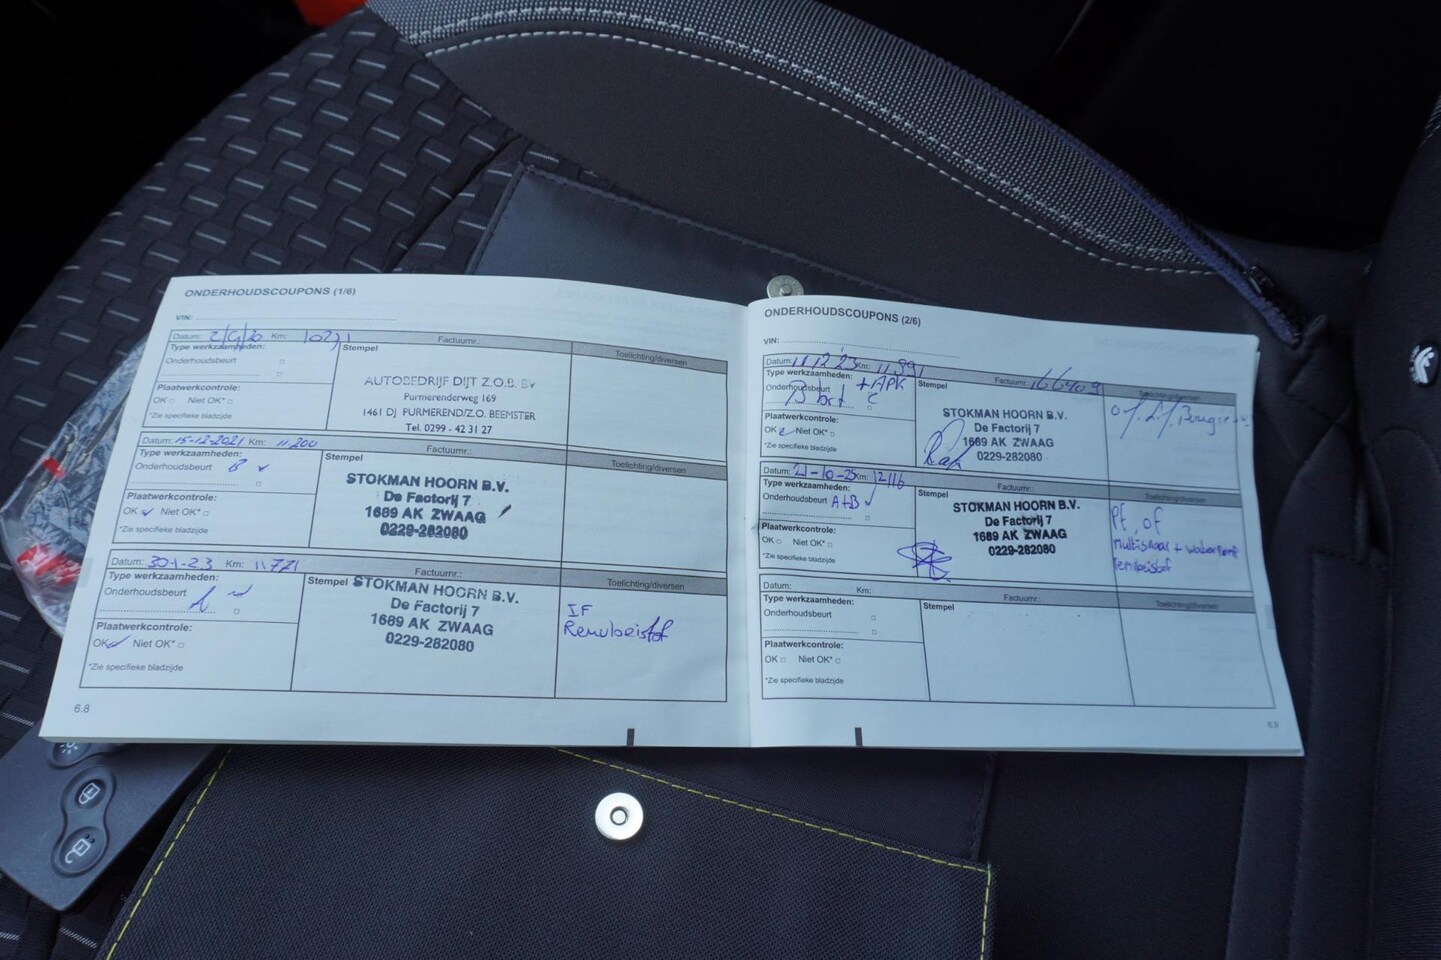 ONDERHOUDSCOUPONS (1/6)
VIN:
Datum: Km: Factuurnr.:
Type werkzaamheden: Stempel Toelichting/diversen
Onderhoudsbeurt
Plaatwerkcontrole:
OK Niet OK*
*Zie specifieke bladzijde
AUTOBEDRIJF DIJT Z.O.B. BV
Purmerenderweg 169
1461 DJ PURMEREND/Z.O. BEEMSTER
Tel. 0299 - 42 31 27
Datum: 15-12-2021 Km: 11200 Factuurnr.:
Type werkzaamheden: Stempel Toelichting/diversen
Onderhoudsbeurt B
Plaatwerkcontrole:
OK Niet OK*
*Zie specifieke bladzijde
STOKMAN HOORN B.V.
De Factorij 7
1689 AK ZWAAG
0229-282080
Datum: 30-1-23 Km: 11771 Factuurnr.:
Type werkzaamheden: Stempel Toelichting/diversen
Onderhoudsbeurt
Plaatwerkcontrole:
OK Niet OK*
*Zie specifieke bladzijde
STOKMAN HOORN B.V.
De Factorij 7
1689 AK ZWAAG
0229-282080
IF
Remvloeistof
6.8
ONDERHOUDSCOUPONS (2/6)
VIN:
Datum: 11 12 '23 Km: Factuurnr.: 166409
Type werkzaamheden: Stempel Toelichting/diversen
Onderhoudsbeurt + APK
Plaatwerkcontrole:
OK Niet OK*
*Zie specifieke bladzijde
STOKMAN HOORN B.V.
De Factorij 7
1689 AK ZWAAG
0229-282080
Datum: 21-10-25 Km: 12116 Factuurnr.:
Type werkzaamheden: Stempel Toelichting/diversen
Onderhoudsbeurt A+B
Plaatwerkcontrole:
OK Niet OK*
*Zie specifieke bladzijde
STOKMAN HOORN B.V.
De Factorij 7
1689 AK ZWAAG
0229-282080
Pf, of
multisnaar + waterpomp
remvloeistof
Datum: Km: Factuurnr.:
Type werkzaamheden: Stempel Toelichting/diversen
Onderhoudsbeurt
Plaatwerkcontrole:
OK Niet OK*
*Zie specifieke bladzijde
6.9